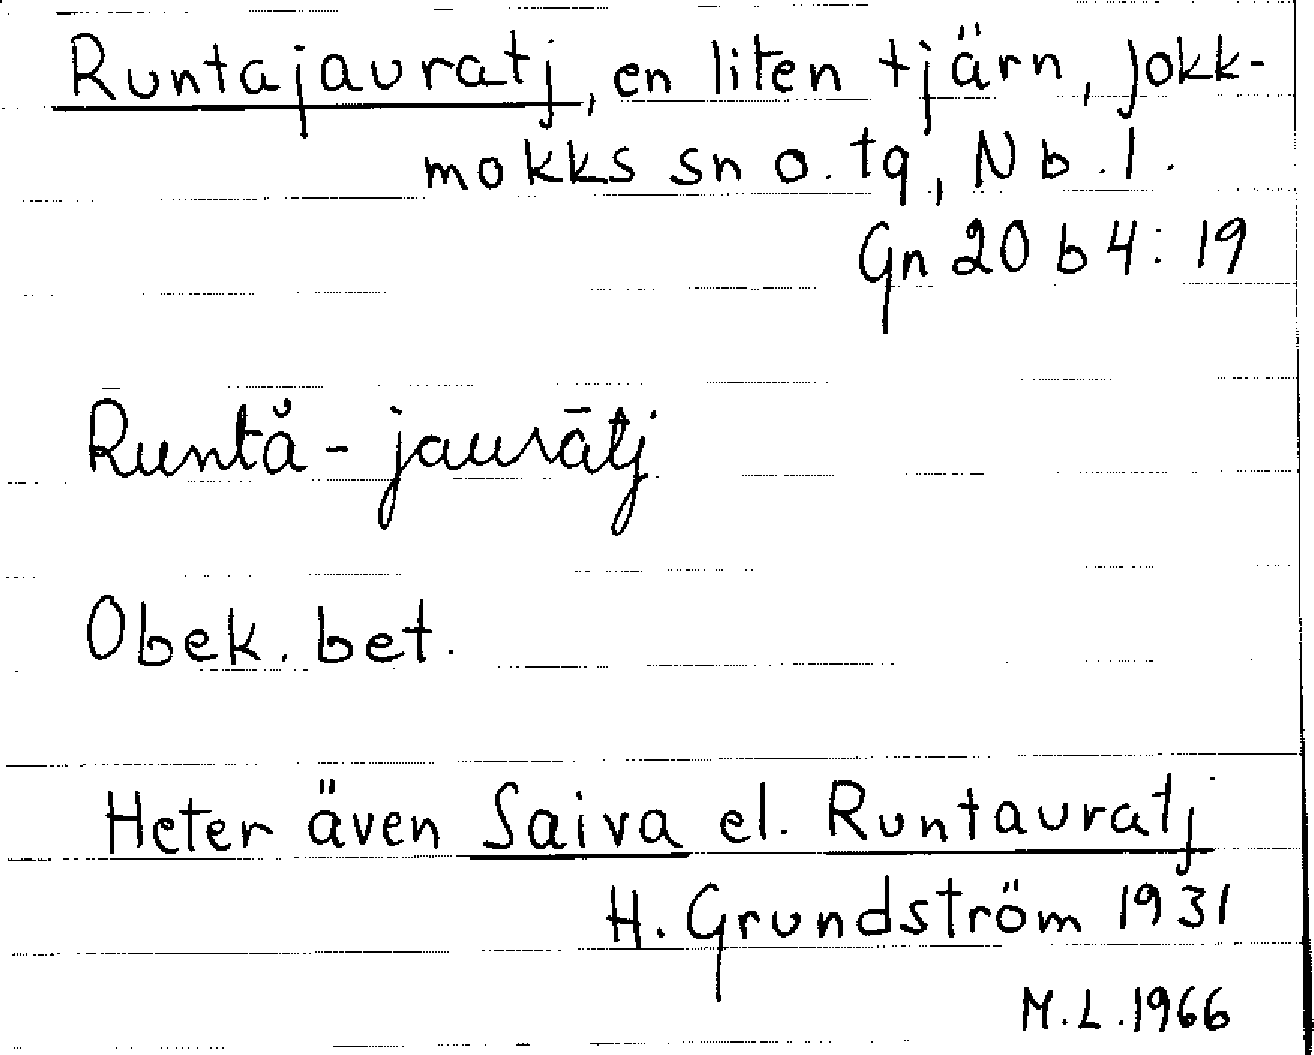 Runtajauratj, en liten tjärn, Jokk-
mokks sn o. tg, Nb. l.
Gn 20 b 4:19
Runtǎ-jaurātj
Obek. bet.
Heter även Saiva el. Runtauratj
H. Grundström 1931
M.L.1966